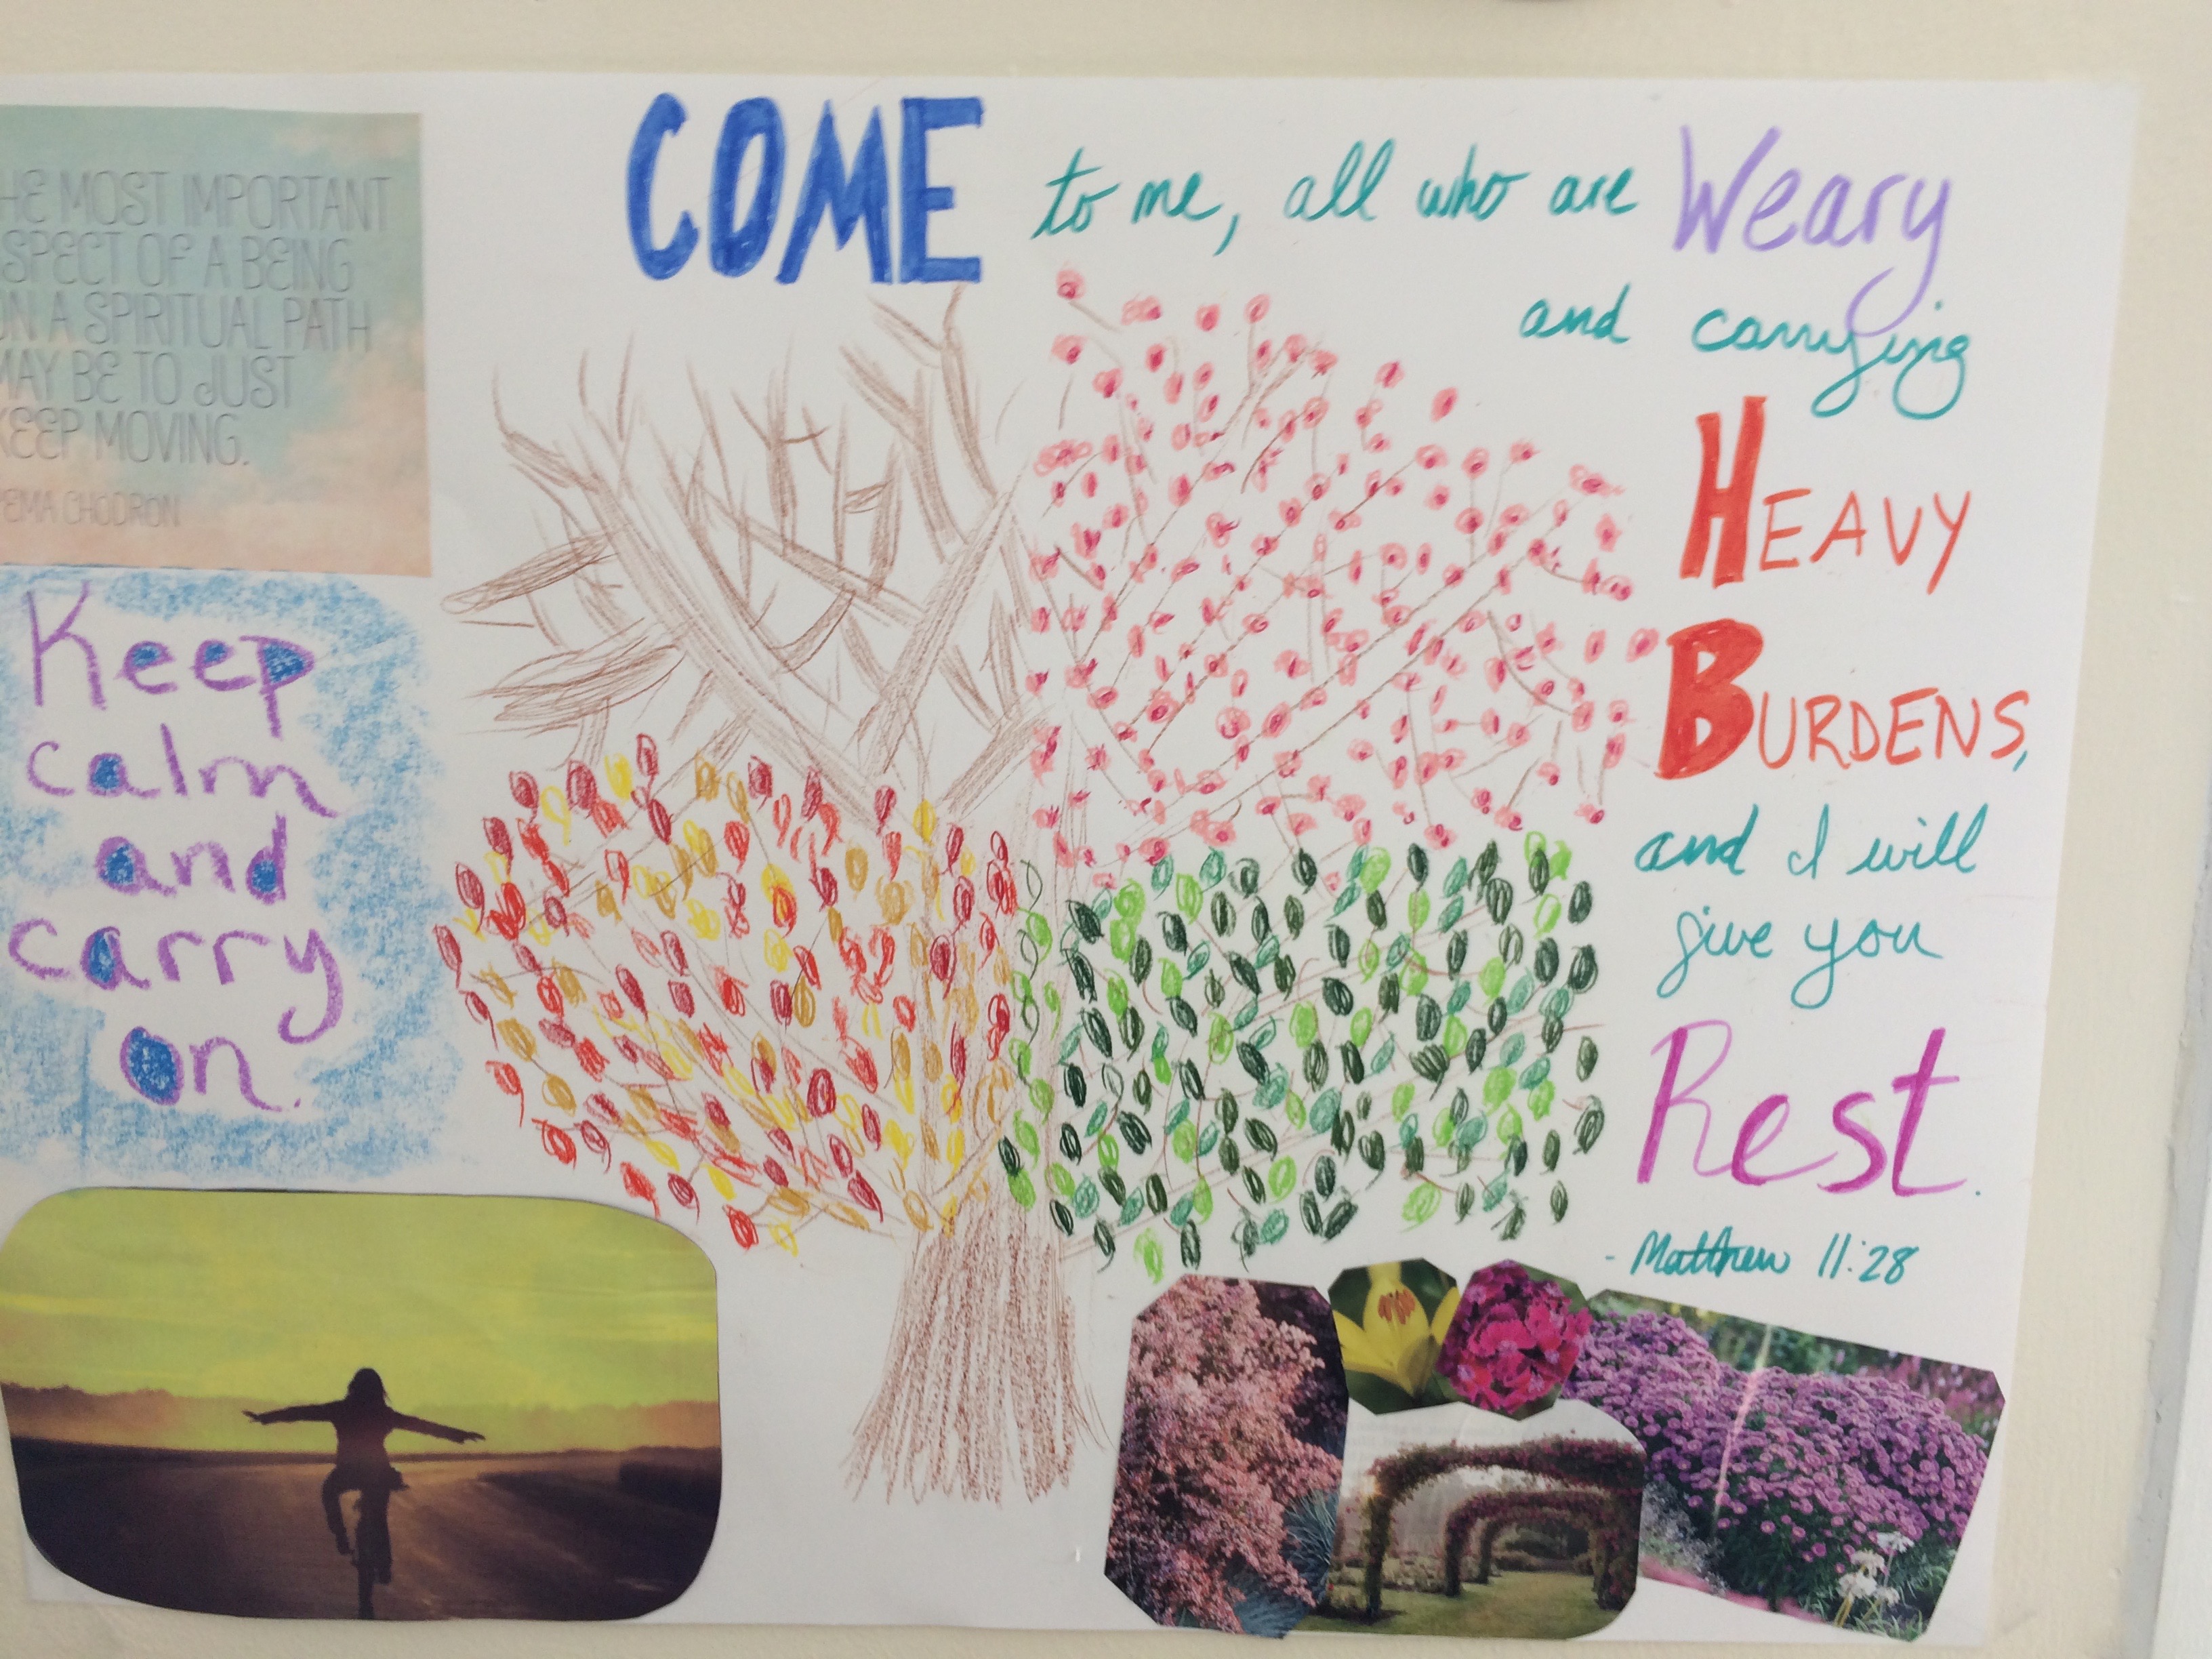 HE MOST IMPORTANT
SPECT OF A BEING
ON A SPIRITUAL PATH
MAY BE TO JUST
KEEP MOVING.
PEMA CHODRON
Keep
calm
and
carry
on.
COME to me, all who are Weary
and carrying
HEAVY
BURDENS,
and I will
give you
Rest.
- Matthew 11:28